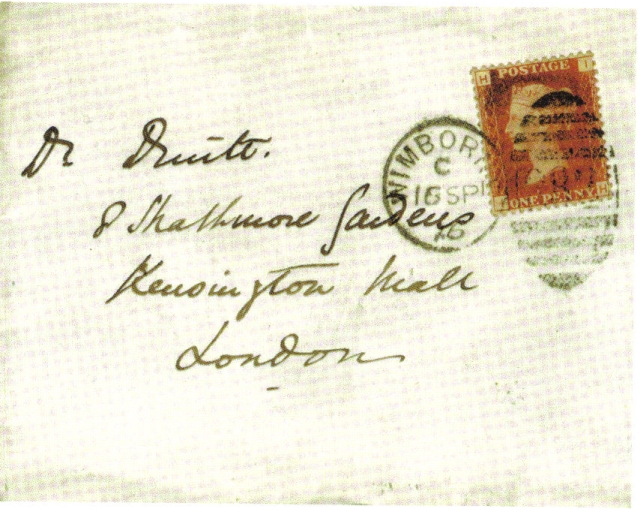 Dr Druitt.
8 Strathmore Gardens
Kensington Mall
London
WIMBORN
C
16 SP
76
H I
POSTAGE
ONE PENNY
I H